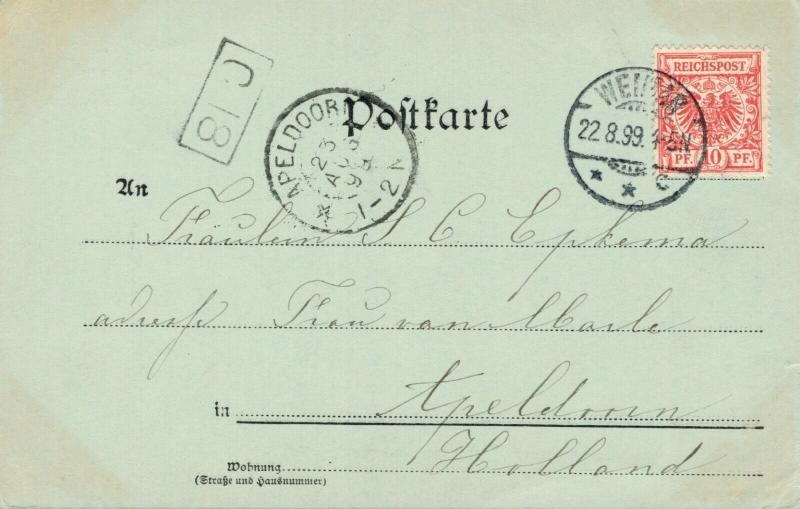 Postkarte
REICHSPOST
PF. 10 PF.
WEIMAR
22.8.99. 4-5N
APELDOORN
23 AUG 99
1-2N
C 18
An
Fräulein S C Epkema
adresse Frau van Marle
in Apeldoorn
Holland
Wohnung
(Straße und Hausnummer)